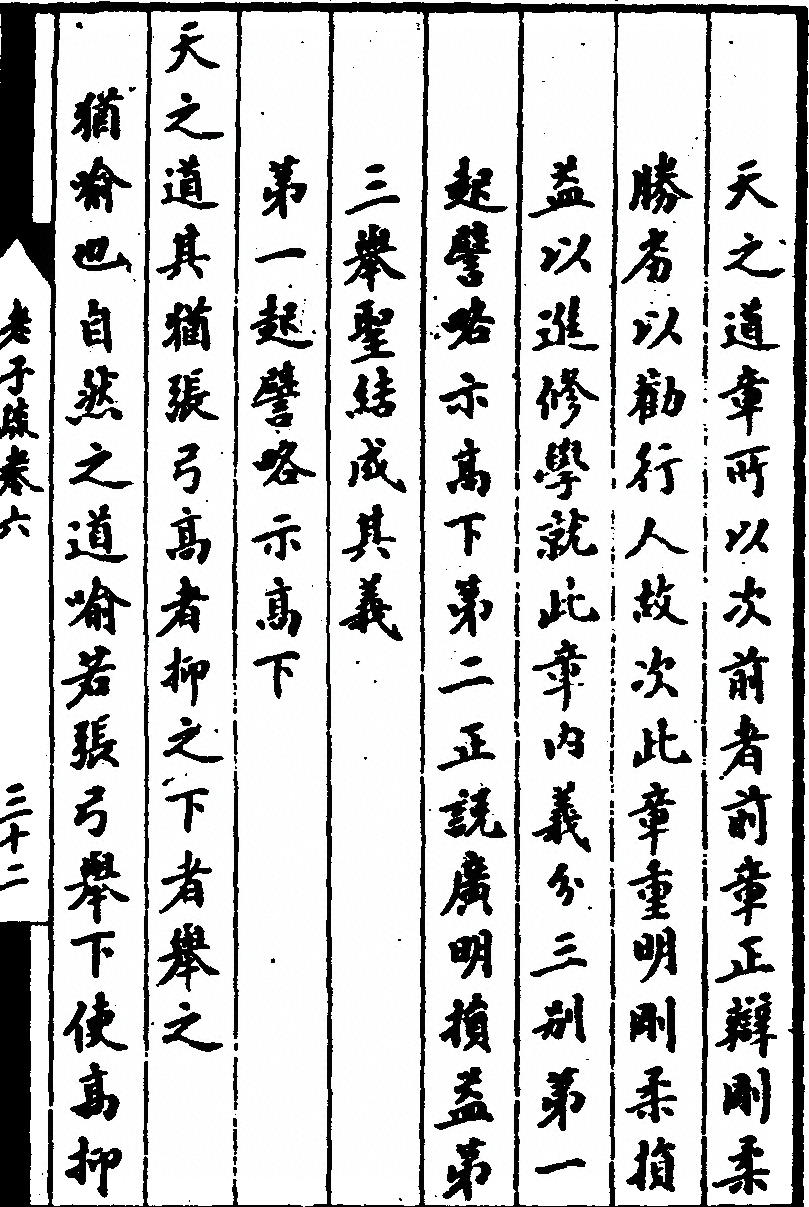 天之道章所以次前者前章正辯剛柔
勝劣以勸行人故次此章重明剛柔損
益以進修學就此章內義分三別第一
起譬略示高下第二正說廣明損益第
三舉聖結成其義
第一起譬略示高下
天之道其猶張弓高者抑之下者舉之
猶喻也自然之道喻若張弓舉下使高抑
老子疏卷六
三十二